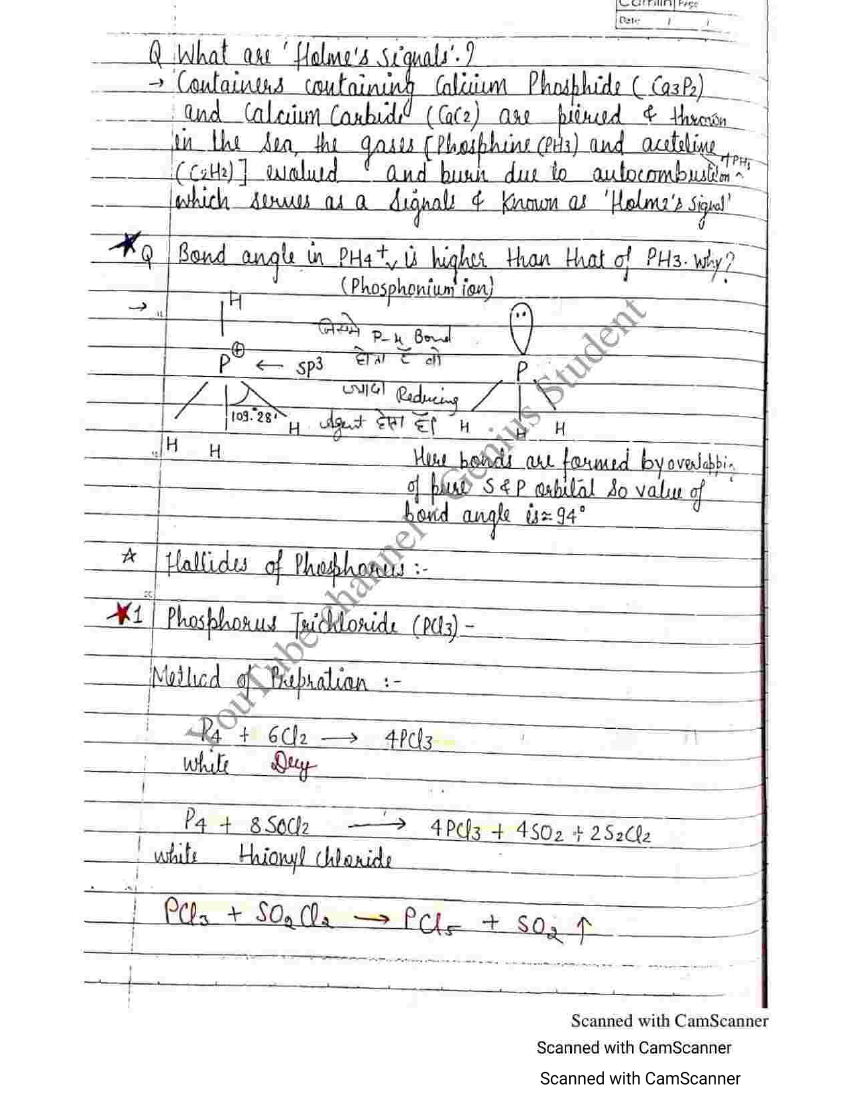 Camlin Page
Date / /
Q What are 'Holme's Signals'.?
→ Containers containing Calcium Phosphide (Ca3P2)
and Calcium Carbide (CaC2) are pierced & thrown
in the sea, the gases [Phosphine (PH3) and aceteline
(C2H2)] evalued and burn due to autocombustion of PH3
which serves as a Signals & Known as 'Holme's Signal'
★Q Bond angle in PH4+ is higher than that of PH3. Why?
(Phosphonium ion)
→ H
P⊕ ← SP3
109°28'
H H H
जिसमे P-H Bond
होता है वो
ज्यादा Reducing
Agent होता है।
P
H H H
Here bonds are formed by overlappin
of pure S & P orbital so value of
bond angle is ≈ 94°
☆ Hallides of Phosphorus :-
★1 Phosphorus Trichloride (PCl3) -
Method of Prepration :-
P4 + 6Cl2 → 4PCl3
white Dry
P4 + 8SOCl2 → 4PCl3 + 4SO2 + 2S2Cl2
white Thionyl chloride
PCl3 + SO2Cl2 → PCl5 + SO2 ↑
YouTube channel - Genius Student
Scanned with CamScanner
Scanned with CamScanner
Scanned with CamScanner